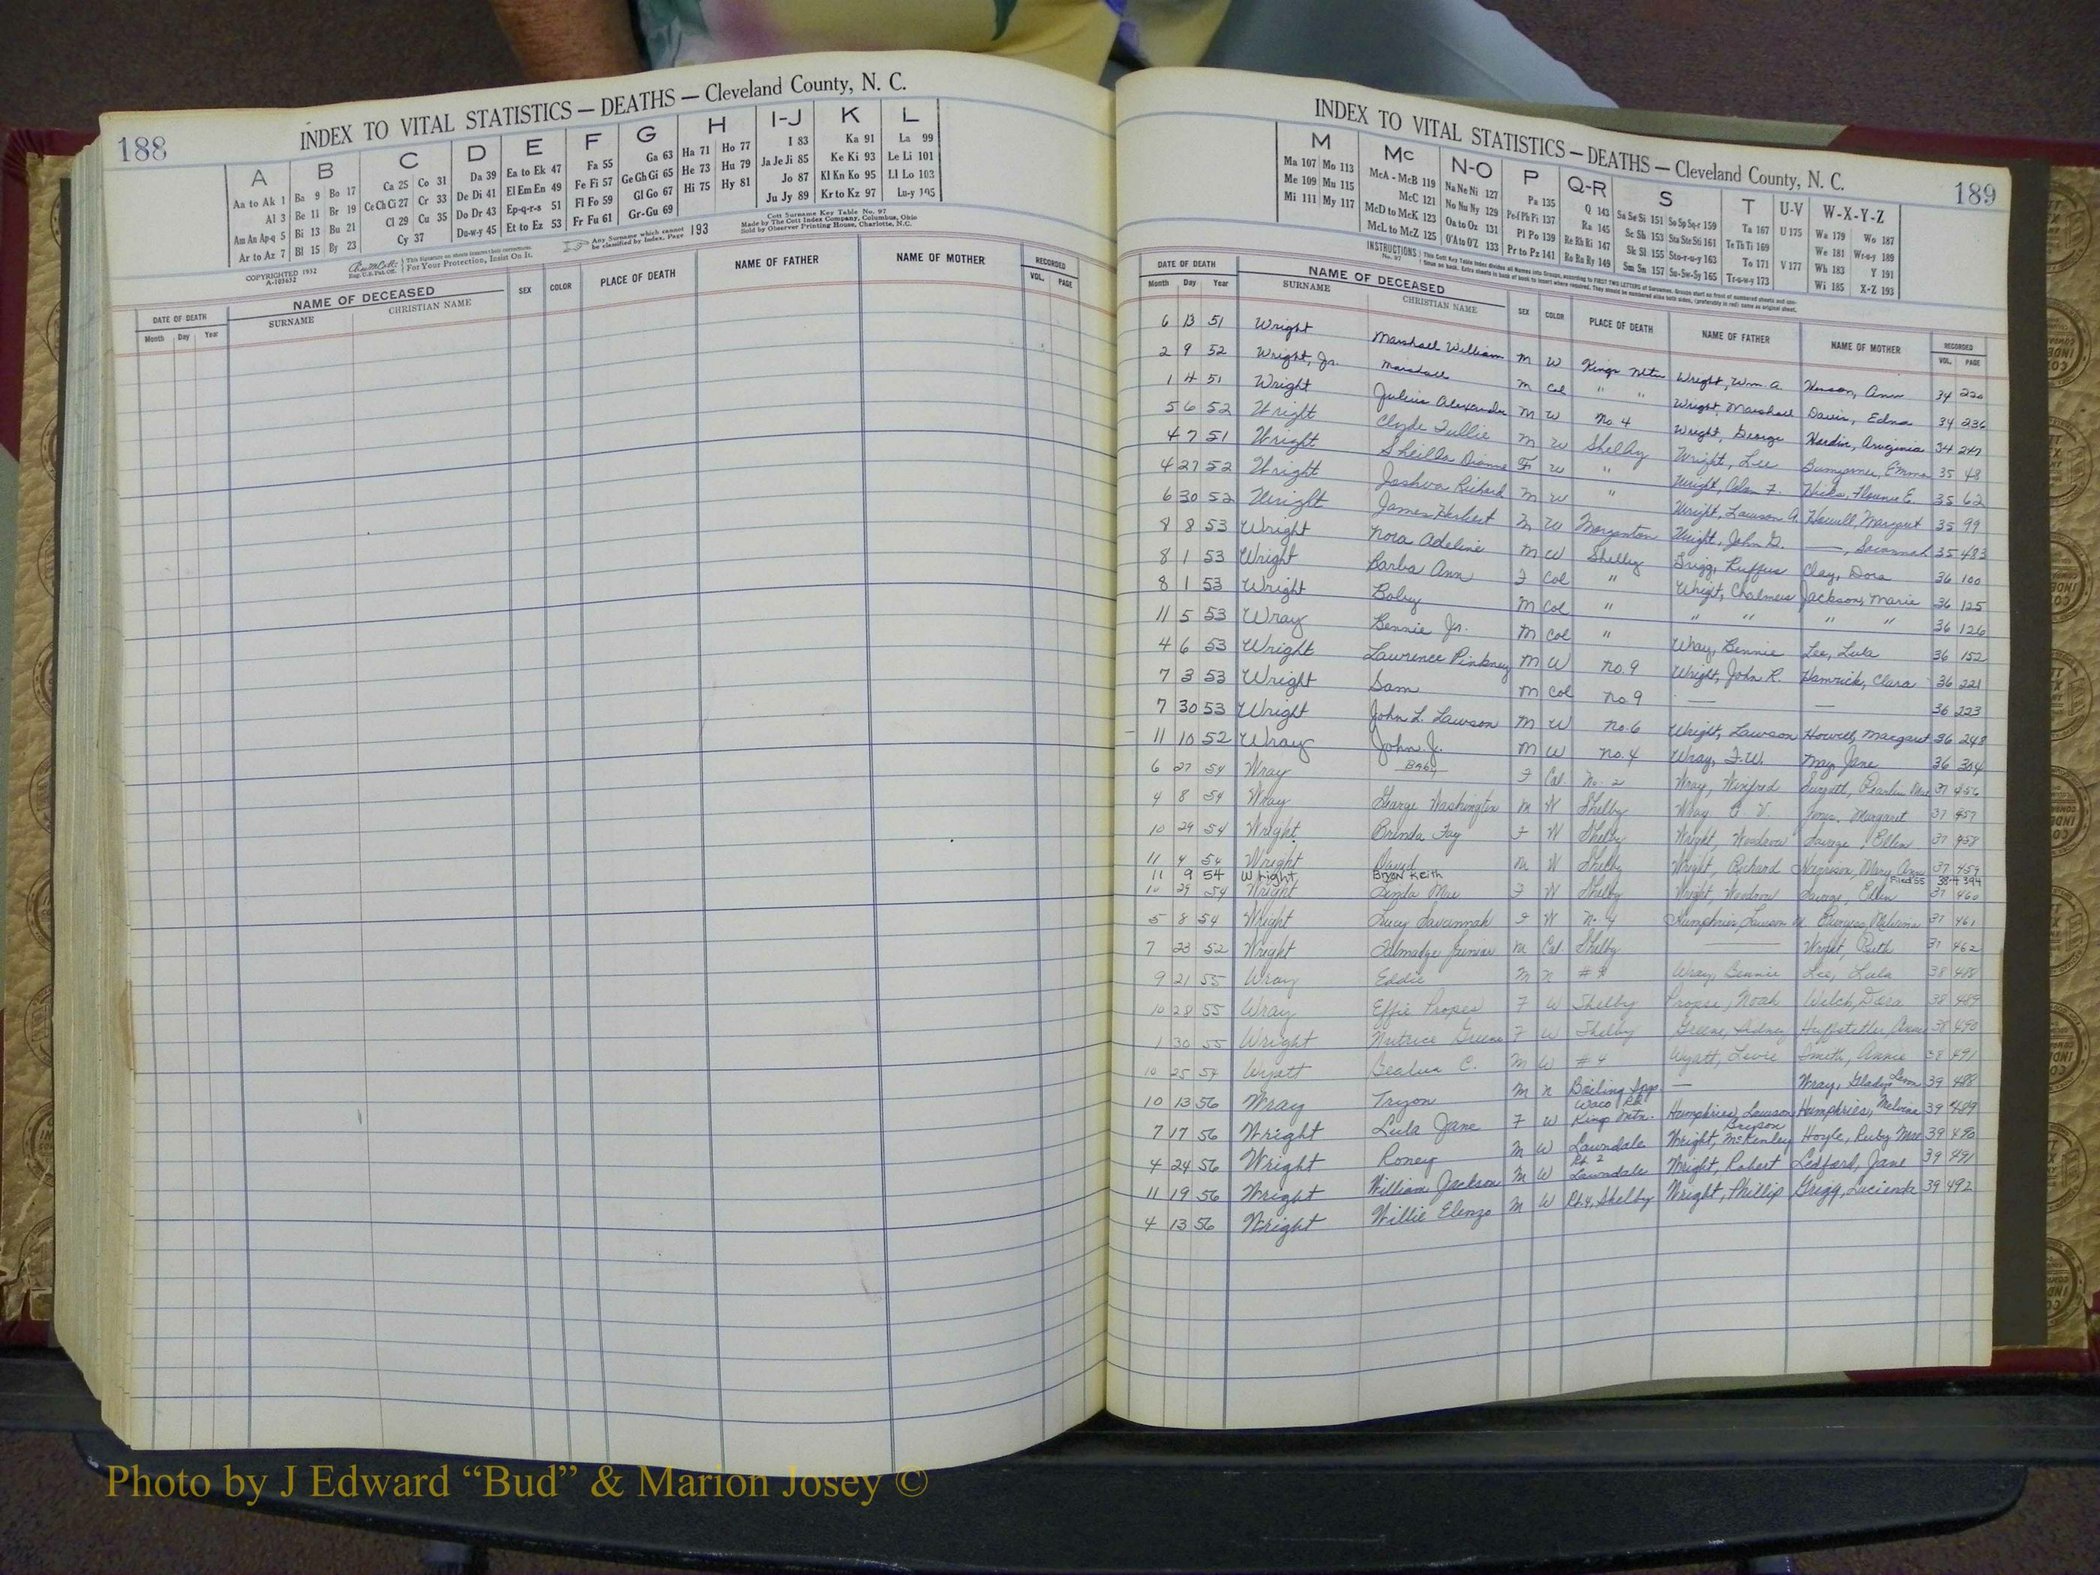 188
INDEX TO VITAL STATISTICS — DEATHS — Cleveland County, N. C.
A B C D E F G H I-J K L
Aa to Ak 1 Ba 9 Bo 17 Ca 25 Co 31 Da 39 Ea to Ek 47 Fa 55 Ga 63 Ha 71 Ho 77 I 83 Ka 91 La 99
Al 3 Be 11 Br 19 Ce Ch Ci 27 Cr 33 De Di 41 El Em En 49 Fe Fi 57 Ge Gh Gi 65 He 73 Hu 79 Ja Je Ji 85 Ke Ki 93 Le Li 101
Am An Ap-q 5 Bi 13 Bu 21 Cl 29 Cu 35 Do Dr 43 Ep-q-r-s 51 Fl Fo 59 Gl Go 67 Hi 75 Hy 81 Jo 87 Kl Kn Ko 95 Ll Lo 103
Ar to Az 7 Bl 15 By 23 Cy 37 Du-w-y 45 Et to Ez 53 Fr Fu 61 Gr-Gu 69 Ju Jy 89 Kr to Kz 97 Lu-y 105
COPYRIGHTED 1932
A-103632
This Signature on sheets insures their correctness.
For Your Protection, Insist On It.
Any Surname which cannot
be classified by Index, Page 193
Cott Surname Key Table No. 97
Made by The Cott Index Company, Columbus, Ohio
Sold by Observer Printing House, Charlotte, N.C.
DATE OF DEATH NAME OF DECEASED SEX COLOR PLACE OF DEATH NAME OF FATHER NAME OF MOTHER RECORDED
Month Day Year SURNAME CHRISTIAN NAME VOL. PAGE
INDEX TO VITAL STATISTICS — DEATHS — Cleveland County, N. C.
189
M Mc N-O P Q-R S T U-V W-X-Y-Z
Ma 107 Mo 113 McA - McB 119 Na Ne Ni 127 Pa 135 Q 143 Sa Se Si 151 So Sp Sq-r 159 Ta 167 U 175 Wa 179 Wo 187
Me 109 Mu 115 McC 121 No Nu Ny 129 Pe-f Ph Pi 137 Ra 145 Sc Sh 153 Sta Ste Sti 161 Te Th Ti 169 We 181 Wr-u-y 189
Mi 111 My 117 McD to McK 123 Oa to Oz 131 Pl Po 139 Re Rh Ri 147 Sk Sl 155 Sto-r-u-y 163 To 171 V 177 Wh 183 Y 191
McL to McZ 125 O'A to O'Z 133 Pr to Pz 141 Ro Ru Ry 149 Sm Sn 157 Su-Sw-Sy 165 Tr-u-w-y 173 Wi 185 X-Z 193
INSTRUCTIONS
No. 97
DATE OF DEATH NAME OF DECEASED SEX COLOR PLACE OF DEATH NAME OF FATHER NAME OF MOTHER RECORDED
Month Day Year SURNAME CHRISTIAN NAME VOL. PAGE
6 13 51 Wright Marshall William M W Kings Mtn Wright, Wm. A. Henson, Ann 34 220
2 9 52 Wright, Jr. Marshall M Col " " Wright, Marshall Davis, Edna 34 236
1 4 51 Wright Julius Alexander M W No. 4 Wright, George Hardin, 34 247
5 6 52 Wright Clyde Tullie M W Shelby Wright, Lee Bumgarner, Emma 35 48
4 7 51 Wright Sheilla Dianne F W " Wright, F. Hicks, Florence E. 35 62
4 27 52 Wright Joshua Richard M W " Wright, Lawson A. Howell, Margaret 35 99
6 30 52 Wright James Herbert M W Morganton Wright, John D. —, Savannah 35 483
8 8 53 Wright Nora Adeline M W Shelby Grigg, Ruffus Clay, Dora 36 100
8 1 53 Wright Barba Ann F Col " Wright, Chalmers Jackson, Marie 36 125
8 1 53 Wright Baby M Col " " " " " 36 126
11 5 53 Wray Bennie Jr. M Col " Wray, Bennie Lee, Lula 36 152
4 6 53 Wright Lawrence Pinkney M W No. 9 Wright, John R. Hamrick, Clara 36 221
7 3 53 Wright Sam M Col No 9 — — 36 223
7 30 53 Wright John L. Lawson M W No. 6 Wright, Lawson Howell, Margaret 36 248
11 10 52 Wray John J. M W No. 4 Wray, F.W. May Jane 36 304
6 27 54 Wray Baby F Col No. 2 Wray, Winfred Surratt, Pearlie Mae 37 456
4 8 54 Wray George Washington M W Shelby Wray C V. Jones, Margaret 37 457
10 29 54 Wright Brenda Fay F W Shelby Wright, Woodrow George, Ellen 37 458
11 4 54 Wright David M W Shelby Wright, Richard Harrison, Mary Anne 37 459
11 9 54 Wright, Bryon Keith Filed 55 38-A 394
10 29 54 Wright Linda Mae F W Shelby Wright, Woodrow George, Ellen 37 460
5 8 54 Wright Lucy Savannah F W No 4 Humphries, Lawson Burgess, Melvina 37 461
7 23 52 Wright Talmadge Junior M Col Shelby — Wright, Ruth 37 462
9 21 55 Wray Eddie M N #4 Wray, Bennie Lee, Lula 38 488
10 28 55 Wray Effie Propes F W Shelby Propse, Noah Welch, Dora 38 489
1 30 55 Wright Greene F W Shelby Greene, Sidney Huffstetler, Anna 38 490
10 25 54 Wyatt C. M W #4 Wyatt, Smith, Annie 38 491
10 13 56 Wray Tryon M N Boiling Spgs — Wray, Gladys Lena 39 488
7 17 56 Wright Lula Jane F W Waco Rd. Kings Mtn. Humphries, Lawson Humphries, Melvina 39 489
4 24 56 Wright Roney M W Lawndale Wright, McKinley Bryson Hoyle, Ruby Mae 39 490
11 19 56 Wright William Jackson M W Rt. 2 Lawndale Wright, Robert Ledford, Jane 39 491
4 13 56 Wright Willie Elenzo M W Rt. 4, Shelby Wright, Phillip Grigg, Lucinda 39 492
Photo by J Edward “Bud” & Marion Josey ©